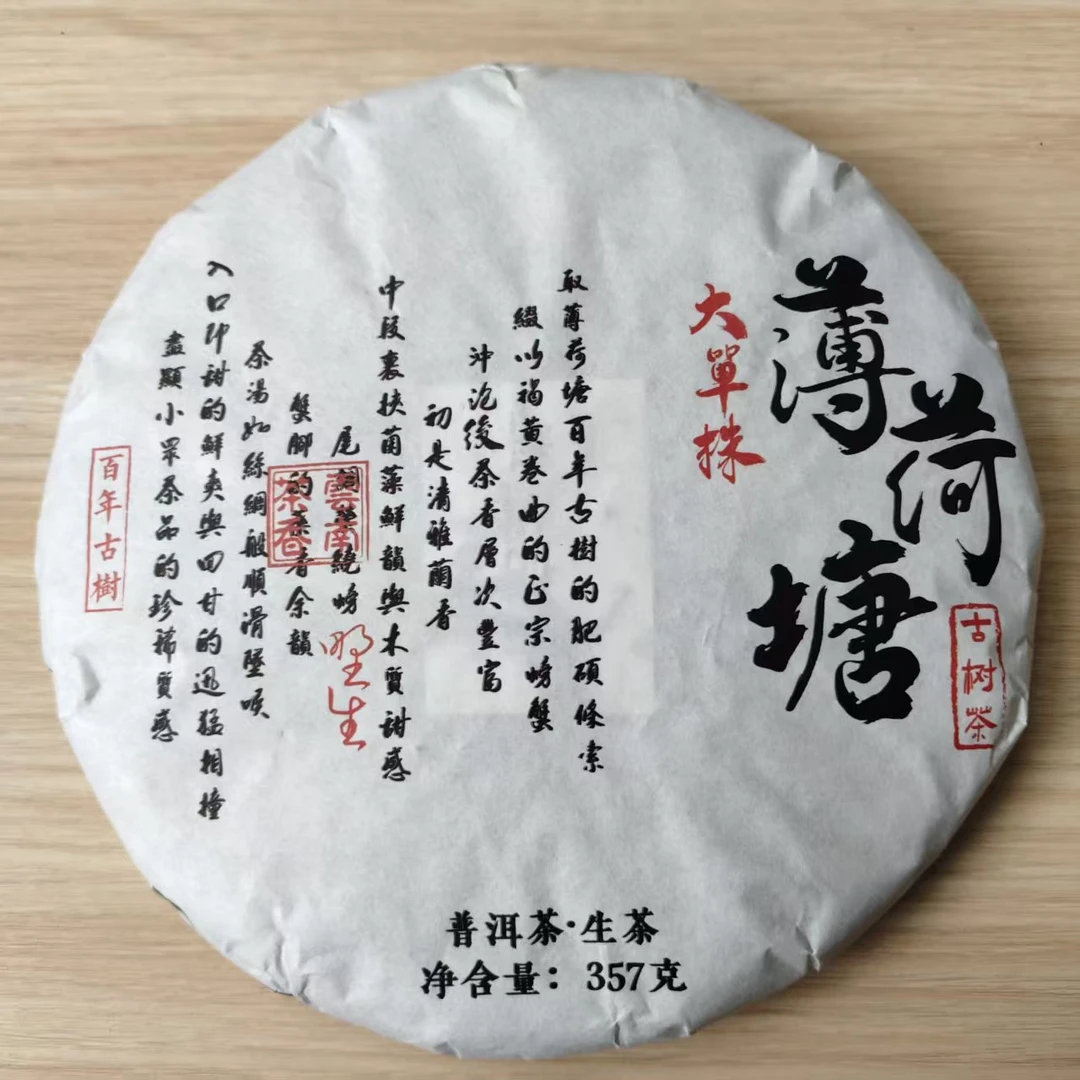 薄荷塘
古树茶
大單株
取薄荷塘百年古樹的肥碩條索
綴以褐黃卷曲的正宗螃蟹
沖泡後茶香層次豐富
初是清雅蘭香
中段裹挾菌藻鮮韻與木質甜感
尾調縈繞螃
蟹腳的藥香余韻
茶湯如絲綢般順滑墜喉
入口即甜的鮮爽與回甘的迅猛相撞
盡顯小眾茶品的珍稀質感
雲南
茶香
野生
百年古樹
普洱茶·生茶
净含量：357克